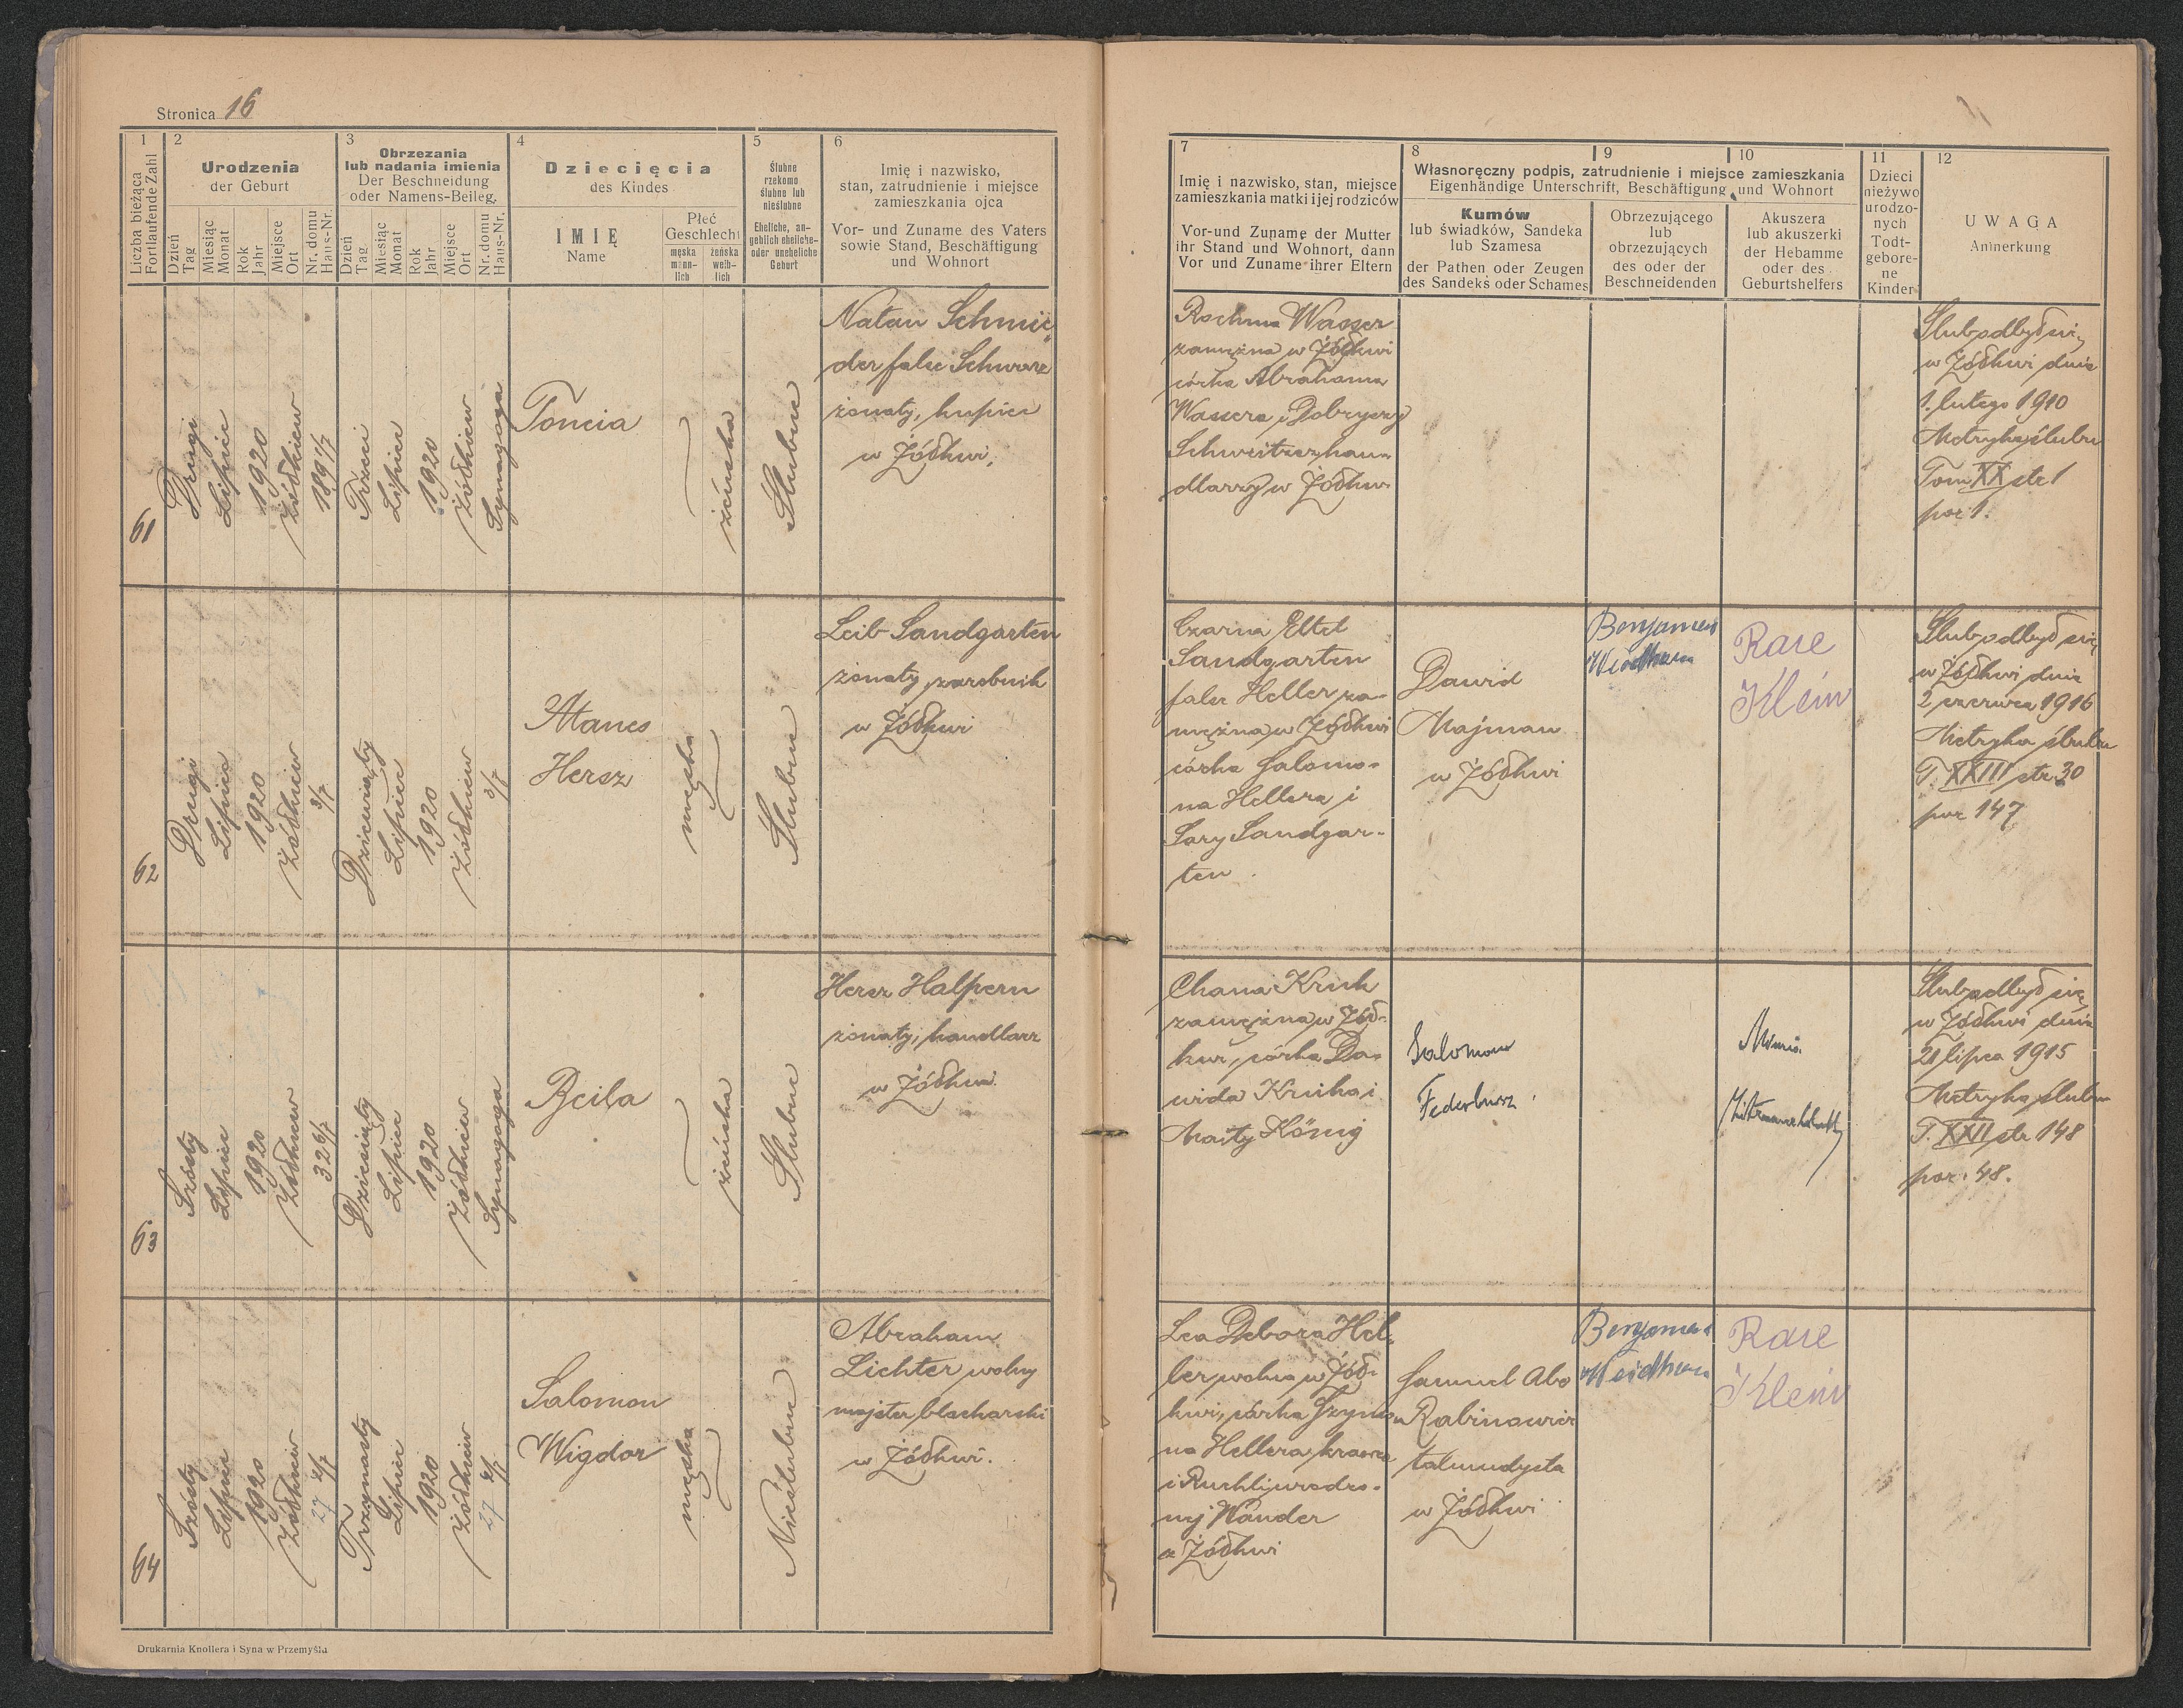 Stronica 16
1
Liczba bieżąca
Fortlaufende Zahl
2
Urodzenia
der Geburt
Dzień
Tag
Miesiąc
Monat
Rok
Jahr
Miejsce
Ort
Nr. domu
Haus-Nr.
3
Obrzezania
lub nadania imienia
Der Beschneidung
oder Namens-Beileg.
Dzień
Tag
Miesiąc
Monat
Rok
Jahr
Miejsce
Ort
Nr. domu
Haus-Nr.
4
Dziecięcia
des Kindes
IMIĘ
Name
Płeć
Geschlecht
męska
männ-
lich
żeńska
weib-
lich
5
Ślubne
rzekomo
ślubne lub
nieślubne
Eheliche, an-
geblich eheliche-
oder uneheliche
Geburt
6
Imię i nazwisko,
stan, zatrudnienie i miejsce
zamieszkania ojca
Vor- und Zuname des Vaters
sowie Stand, Beschäftigung
und Wohnort
7
Imię i nazwisko, stan, miejsce
zamieszkania matki i jej rodziców
Vor-und Zuname der Mutter
ihr Stand und Wohnort, dann
Vor und Zuname ihrer Eltern
8
9
10
Własnoręczny podpis, zatrudnienie i miejsce zamieszkania
Eigenhändige Unterschrift, Beschäftigung und Wohnort
Kumów
lub świadków, Sandeka
lub Szamesa
der Pathen oder Zeugen
des Sandeks oder Schames
Obrzezującego
lub
obrzezujących
des oder der
Beschneidenden
Akuszera
lub akuszerki
der Hebamme
oder des
Geburtshelfers
11
Dzieci
nieżywo
urodzo-
nych
Todt-
gebore-
ne
Kinder
12
UWAGA
Anmerkung
61
Drugi
Lipiec
1920
Żółkiew
189 1/7
Trzeci
Lipiec
1920
Żółkiew
Synagoga
Toncia
żeńska
Ślubne
Natan Schnei
der false Schwarz
żonaty, kupiec
w Żółkwi,
Rochma Wasser
zamężna w Żółkwi
córka Abrahama
Wassera i Dobryszy
Schweitzer, han-
dlarzy w Żółkwi
Ślub odbył się
w Żółkwi dnia
1. lutego 1910
Metryka ślubu
Tom XX str 1
poz 1.
62
Drugi
Lipiec
1920
Żółkiew
3/7
Dziewiąty
Lipiec
1920
Żółkiew
3/7
Manes
Hersz
męska
Ślubne
Leib Sandgarten
żonaty, zarobnik
w Żółkwi
Czarna Ettel
Sandgarten
false Heller za-
mężna w Żółkwi
córka Salomo-
na Hellera i
Sary Sandgar-
ten
Dawid
Majman
w Żółkwi
Benjamin
Weidhorn
Rare
Klein
Ślub odbył się
w Żółkwi dnia
2 czerwca 1916
Metryka ślubu
T. XXIII str 30
poz 147
63
Szósty
Lipiec
1920
Żółkiew
326/7
Dziesiąty
Lipiec
1920
Żółkiew
Synagoga
Bejla
żeńska
Ślubne
Hersz Halpern
żonaty, handlarz
w Żółkwi
Chana Kruk
zamężna w Żół-
kwi, córka Da-
wida Kruka i
Maity König
Salomon
Federbusz
Ślub odbył się
w Żółkwi dnia
21 lipca 1915
Metryka ślubu
T. XXII str 148
poz. 48.
64
Szósty
Lipiec
1920
Żółkiew
27 2/7
Trzynasty
Lipiec
1920
Żółkiew
27 2/7
Salomon
Wigdor
męska
Nieślubne
Abraham
Lichter wolny
majster blacharski
w Żółkwi.
Lea Debora Hel-
ler, wolna w Żół-
kwi, córka Szymo-
na Hellera, krawca
i Ruchli, urodzo-
nej Wander
z Żółkwi
Samuel Abo
Rabinowicz
talmudysta
w Żółkwi
Benjamin
Weidhorn
Rare
Klein
Drukarnia Knollera i Syna w Przemyślu